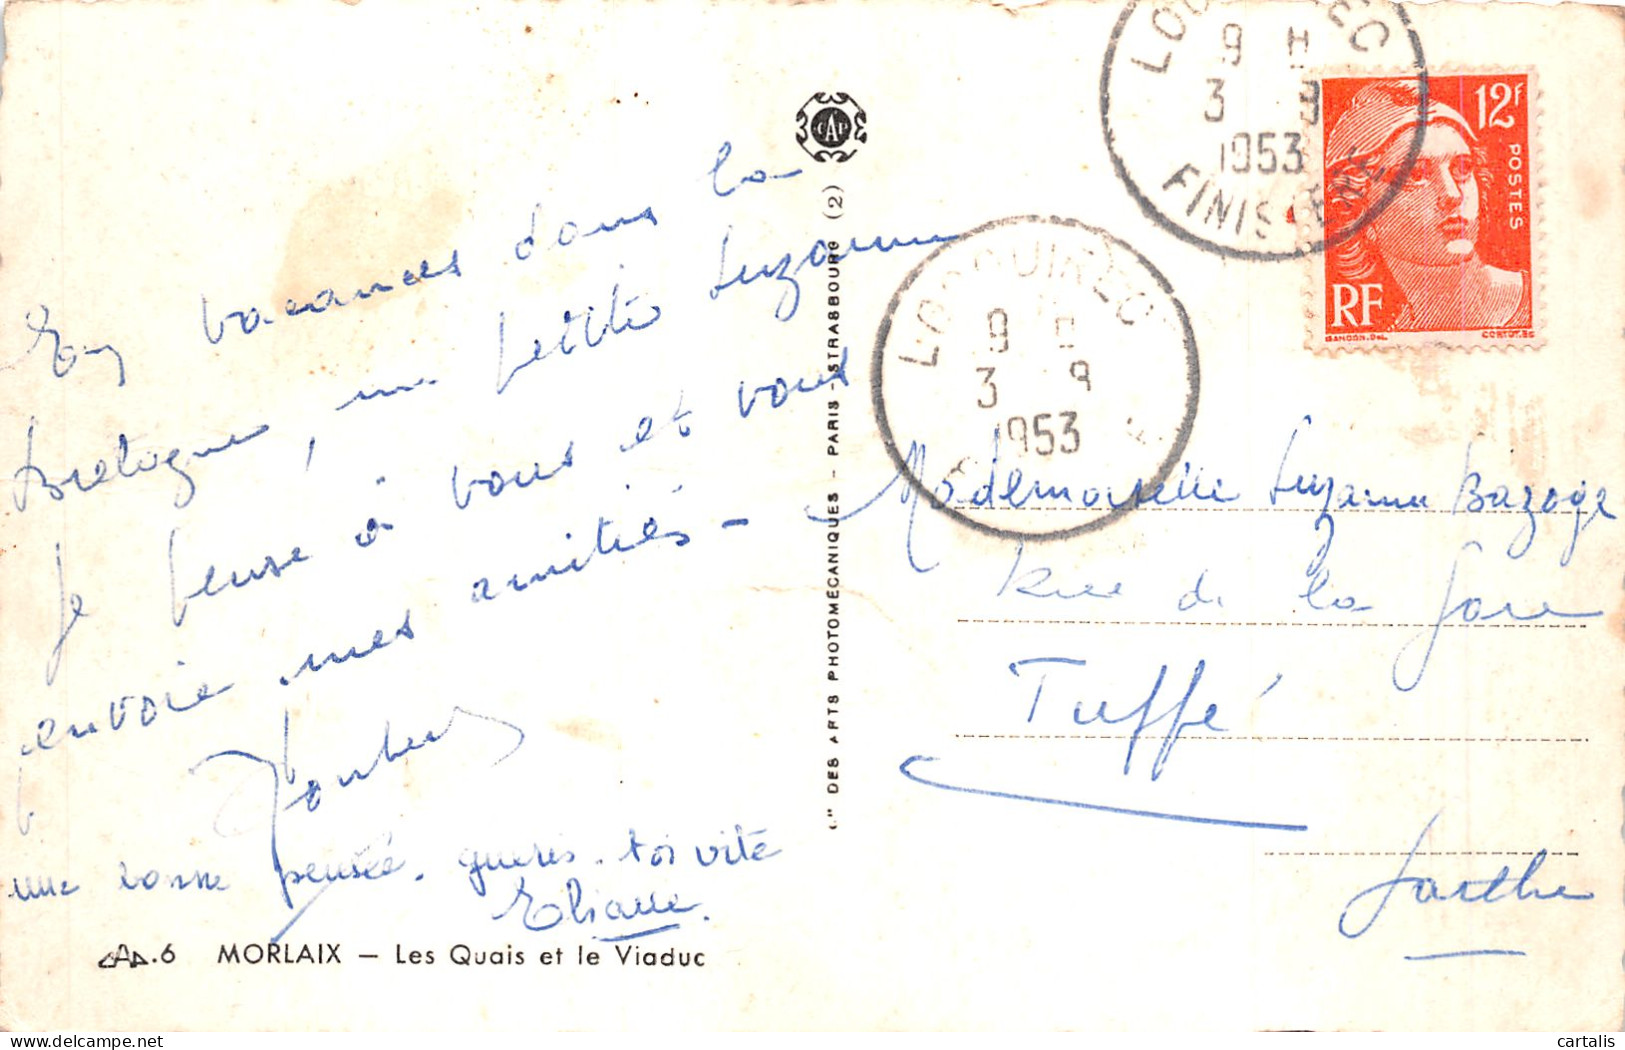 En vacances dans la
Bretagne, ma petite Suzanne
je pense à vous et vous
envoie mes amitiés –
une bonne pensée. guéris-toi vite
Eliane.
CAP.6 MORLAIX – Les Quais et le Viaduc
CAP
Cie DES ARTS PHOTOMÉCANIQUES - PARIS - STRASBOURG (2)
LOCQUIREC
9 H
3 9
1953
FINISTERE
LOCQUIREC
9 H
3 9
1953
12F
POSTES
RF
GANDON.DEL.
CORTOT.SC
Mademoiselle Suzanne Bazoge
Rue de la Gare
Tuffé
Sarthe
cartalis